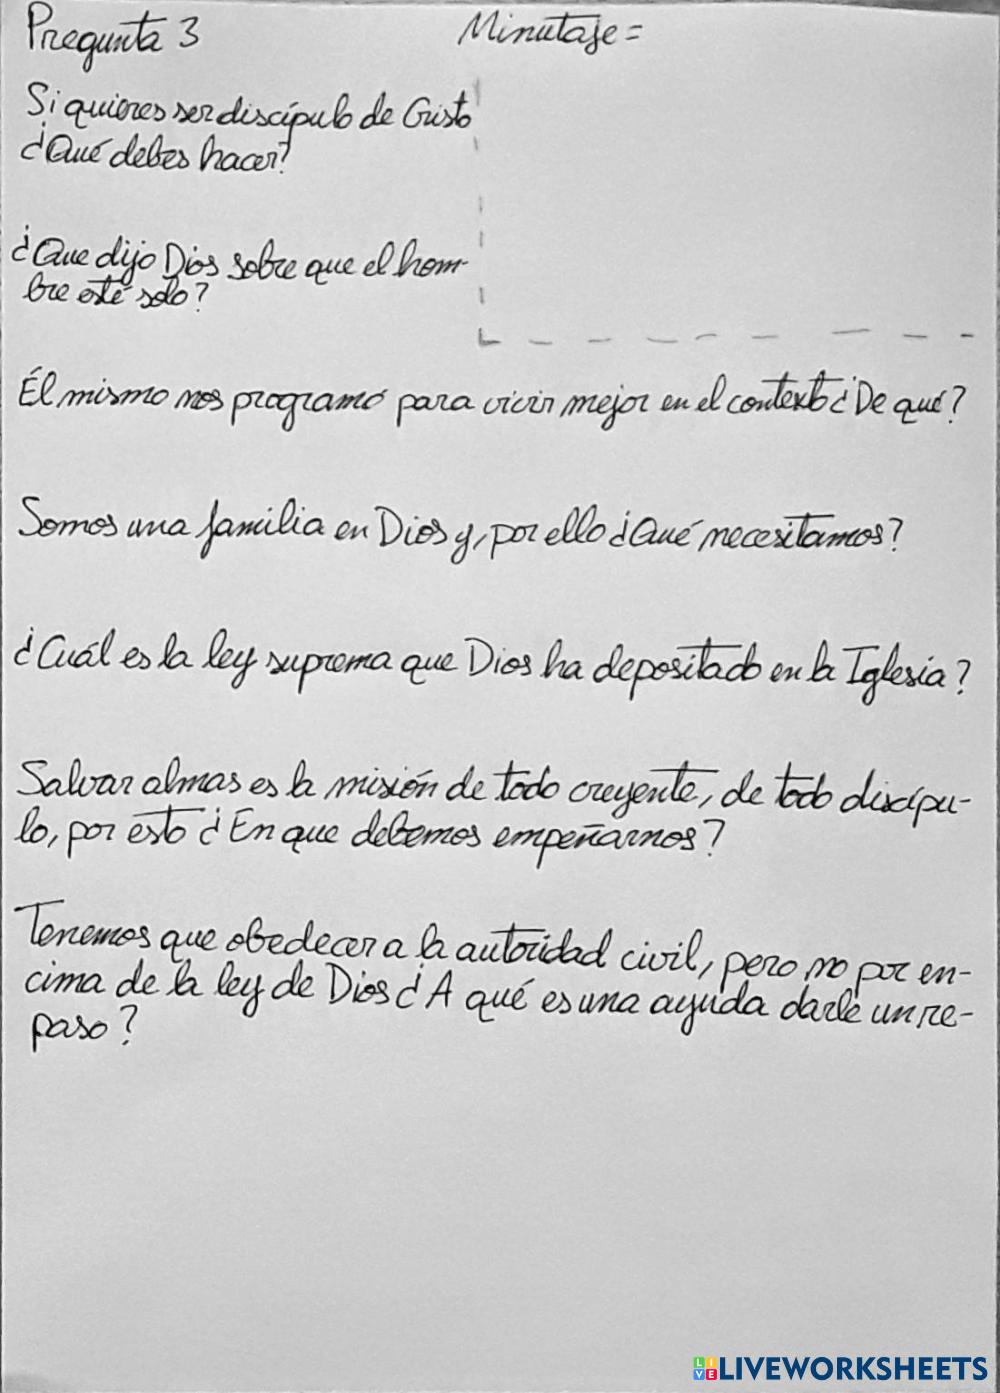 Pregunta 3
Minutaje =
Si quieres ser discípulo de Cristo
¿Qué debes hacer?
¿Que dijo Dios sobre que el hom-
bre esté solo?
Él mismo nos programó para vivir mejor en el contexto ¿De qué?
Somos una familia en Dios y, por ello ¿Qué necesitamos?
¿Cuál es la ley suprema que Dios ha depositado en la Iglesia?
Salvar almas es la misión de todo creyente, de todo discípu-
lo, por esto ¿En que debemos empeñarnos?
Tenemos que obedecer a la autoridad civil, pero no por en-
cima de la ley de Dios ¿A qué es una ayuda darle un re-
paso?
LIVEWORKSHEETS